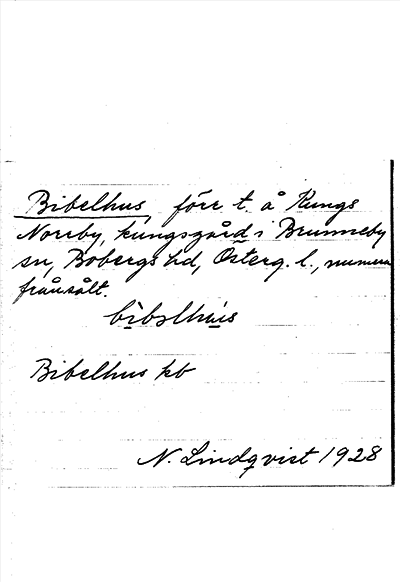 Bibelhus, förr t. å Kungs
Norrby, kungsgård i Brunneby
sn, Bobergs hd, Österg. l., numera
frånsålt.
bìbəlhùs
Bibelhus kb
N. Lindqvist 1928